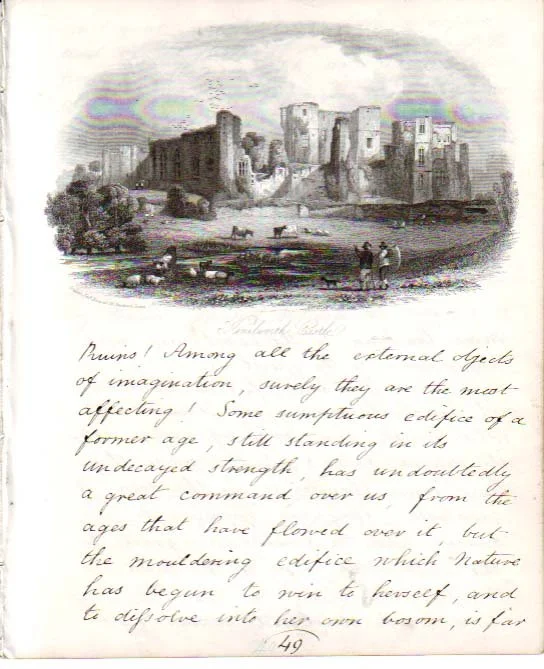 Kenilworth Castle
Ruins! Among all the external objects
of imagination, surely they are the most
affecting! Some sumptuous edifice of a
former age, still standing in its
undecayed strength, has undoubtedly
a great command over us, from the
ages that have flowed over it, but
the mouldering edifice which Nature
has begun to win to herself, and
to dissolve into her own bosom, is far
49